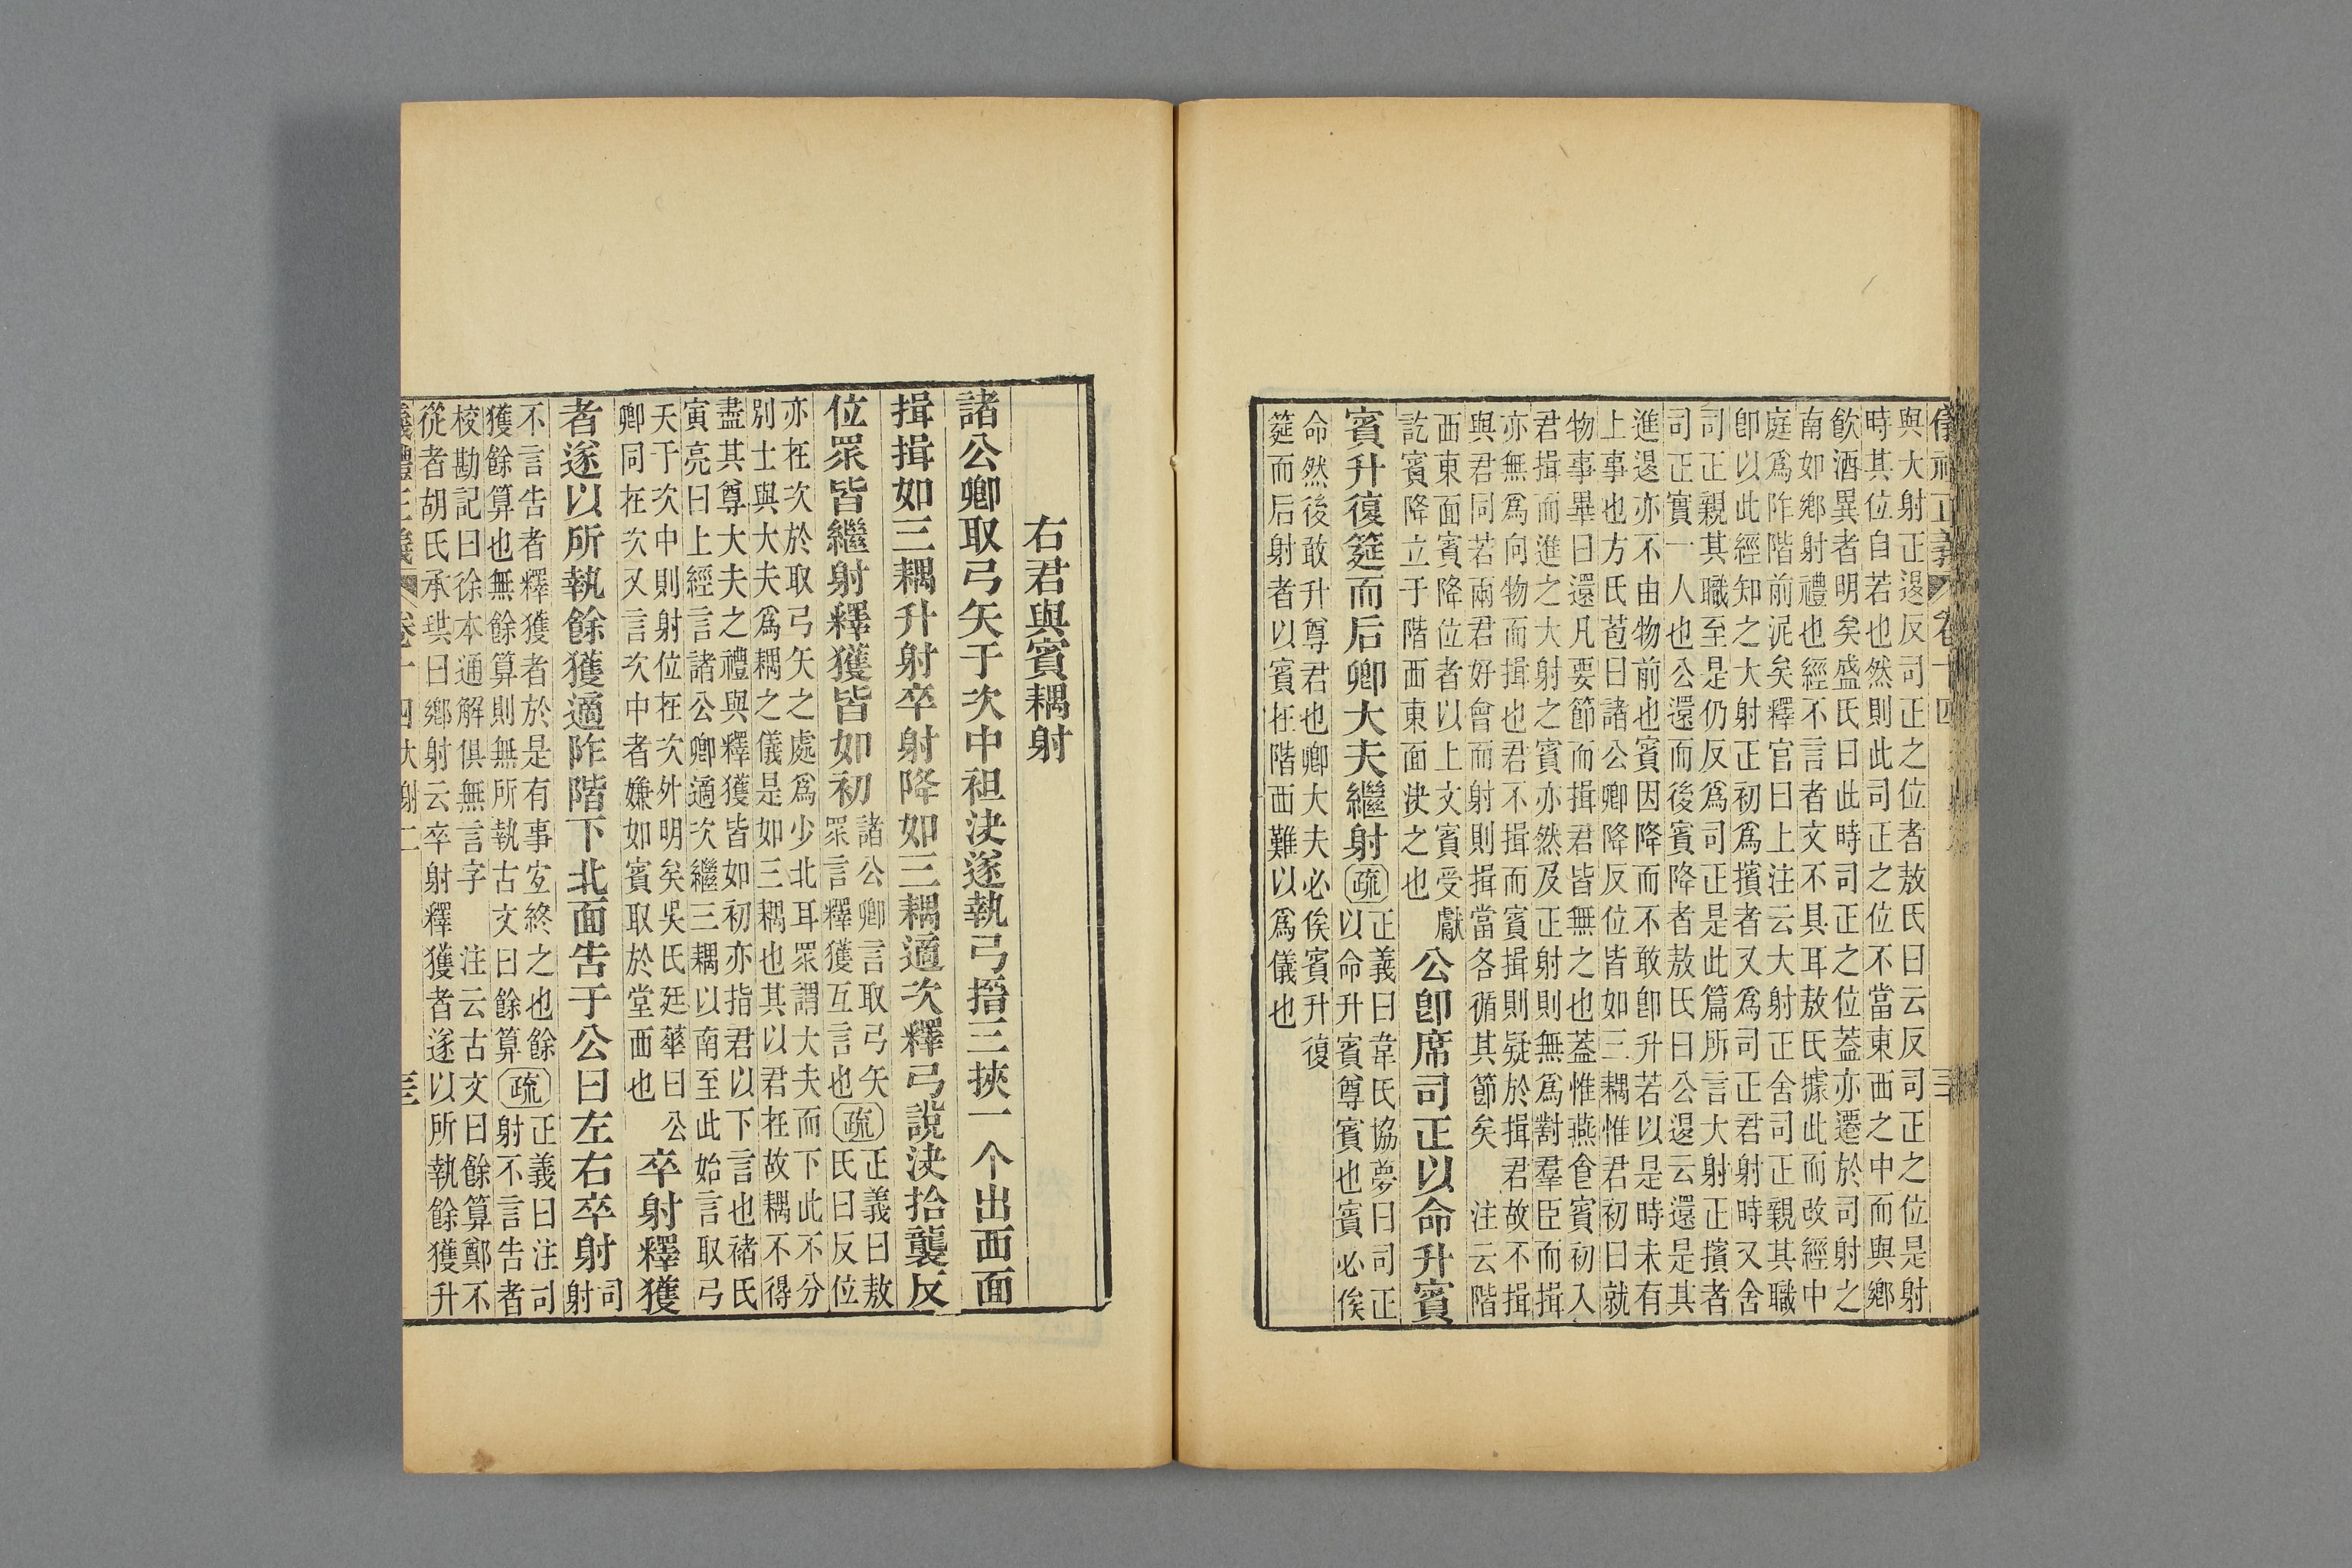 儀禮正義 卷十四
與大射正退反司正之位者敖氏曰云反司正之位是射
時其位自若也然則此司正之位不當東西之中而與鄉
飲酒異者明矣盛氏曰此時司正之位蓋亦遷於司射之
南如鄉射禮也經不言者文不具耳敖氏據此而改經中
庭爲阼階前泥矣釋官曰上注云大射正舍司正親其職
卽以此經知之大射正初爲擯者又爲司正君射時又舍
司正親其職至是仍反爲司正是此篇所言大射正擯者
司正實一人也公還而後賓降者敖氏曰公退云還是其
進退亦不由物前也賓因降而不敢卽升若以是時未有
上事也方氏苞曰諸公卿降反位皆如三耦惟君初曰就
物事畢曰還凡要節而揖君皆無之也蓋惟燕食賓初入
君揖而進之大射之賓亦然及正射則無爲對羣臣而揖
亦無爲向物而揖也君不揖而賓揖則疑於揖君故不揖
與君同若兩君好會而射則揖當各循其節矣 注云階
西東面賓降位者以上文賓受獻
訖賓降立于階西東面決之也
公卽席司正以命升賓
賓升復筵而后卿大夫繼射
疏正義曰韋氏協夢曰司正
以命升賓尊賓也賓必俟
命然後敢升尊君也卿大夫必俟賓升復
筵而后射者以賓在階西難以爲儀也
右君與賓耦射
諸公卿取弓矢于次中袒決遂執弓搢三挾一个出西面
揖揖如三耦升射卒射降如三耦適次釋弓說決拾襲反
位眾皆繼射釋獲皆如初
諸公卿言取弓矢
眾言釋獲互言也
疏正義曰敖
氏曰反位
亦在次於取弓矢之處爲少北耳眾謂大夫而下此不分
別士與大夫爲耦之儀是如三耦也其以君在故耦不得
盡其尊大夫之禮與釋獲皆如初亦指君以下言也褚氏
寅亮曰上經言諸公卿適次繼三耦以南至此始言取弓
天于次中則射位在次外明矣吳氏廷華曰公
卿同在次又言次中者嫌如賓取於堂西也
卒射釋獲
者遂以所執餘獲適阼階下北面告于公曰左右卒射
司
射
不言告者釋獲者於是有事宜終之也餘
獲餘算也無餘算則無所執古文曰餘算
疏正義曰注司
射不言告者
校勘記曰徐本通解俱無言字 注云古文曰餘算鄭不
從者胡氏承珙曰鄉射云卒射釋獲者遂以所執餘獲升